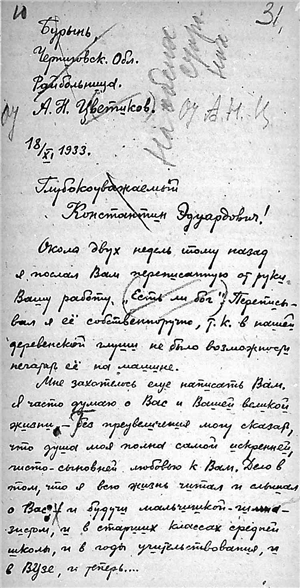 10
31
Бурынь,
Черниговск. Обл.
Райбольница.
А. Н. Цветиков.
от А. Н. Ц.
18/XI 1933.
Глубокоуважаемый
Константин Эдуардович!
Около двух недель тому назад
я послал Вам переписанную от руки
Вашу работу („Есть ли бог“) Переписы-
вал я её собственноручно, т. к. в нашей
деревенской глуши не было возможности
печатать её на машине.
Мне захотелось еще написать Вам.
Я часто думаю о Вас и Вашей великой
жизни. Без преувеличения могу сказать,
что душа моя полна самой искренней,
чисто-сыновней любовью к Вам. Дело в
том, что я всю жизнь читал и слышал
о Вас: и будучи мальчишкой-гимна-
зистом, и в старших классах средней
школы, и в годы учительствования, и
в ВУЗе, и теперь....